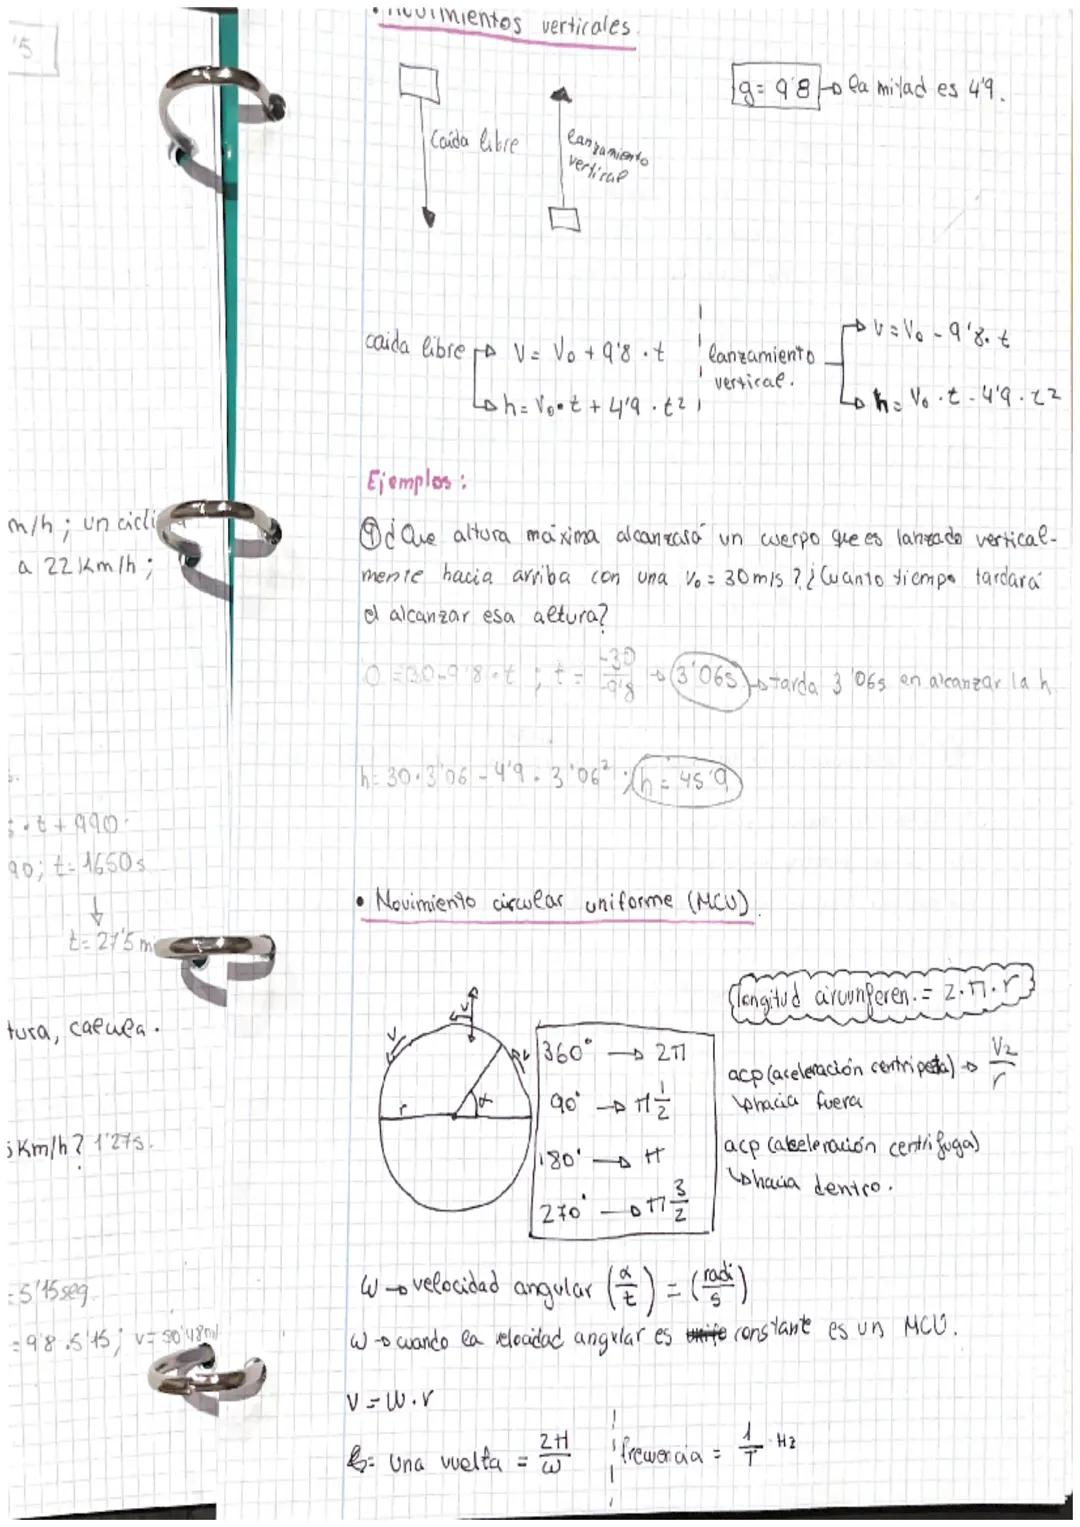 '5
m/h ; un cicli
a 22 Km/h ;
s.t + 990
90; t= 1650 s
t= 27'5 m
tura, calcula.
Km/h? 1'27s.
= 5'15 seg.
= 9'8 . 5'15 ; v= 50'48 m/
• Movimientos verticales.
g= 9'8 → la mitad es 4'9.
Caída libre
lanzamiento
vertical
caída libre → V= V₀ + 9'8 . t
→ h= V₀ • t + 4'9 . t²
lanzamiento
vertical.
→ V= V₀ - 9'8. t
→ h= V₀ . t - 4'9 . t²
Ejemplos :
① ¿Que altura máxima alcanzará un cuerpo que es lanzado vertical-
mente hacia arriba con una V₀ = 30 m/s ? ¿Cuanto tiempo tardará
el alcanzar esa altura?
0 = 30 - 9'8 . t ; t = -30/-9'8 → 3'06s → tarda 3'06s en alcanzar la h
h= 30 . 3'06 - 4'9 . 3'06² ; h = 45'9
• Movimiento circular uniforme (MCU).
longitud circunferen. = 2.π.r
V
V
V
r
α
360° → 2π
90° → π 1/2
180° → π
270° → π 3/2
acp (aceleración centripeta) → V2/r
↳ hacia fuera
acp (aceleración centrifuga)
↳ hacia dentro.
ω → velocidad angular (α/t) = (radi/s)
ω → cuando la velocidad angular es constante es un MCU.
V = ω . r
una vuelta = 2π/ω
frecuencia = 1/T . Hz